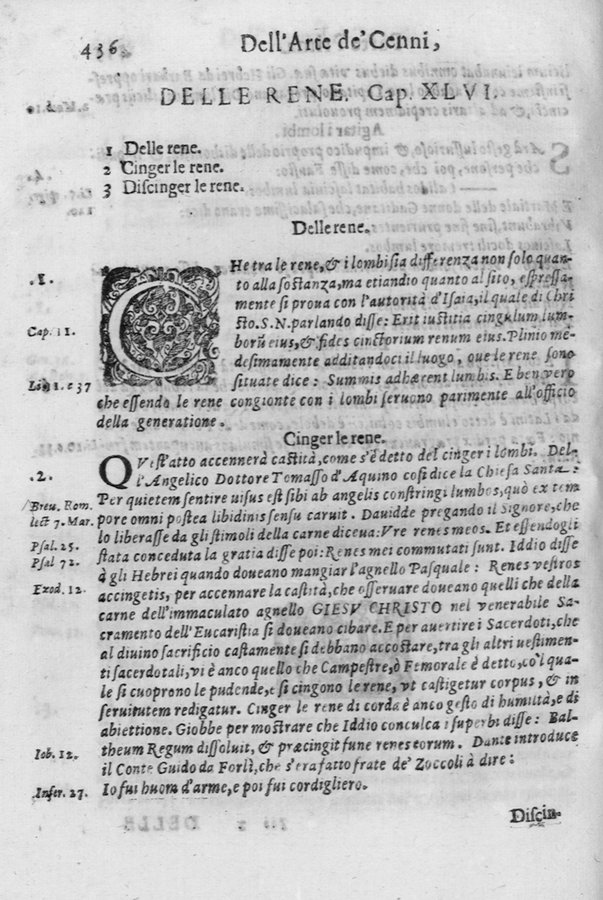 436
Dell'Arte de'Cenni,
DELLE RENE. Cap. XLVI.
1 Delle rene.
2 Cinger le rene.
3 Discinger le rene.
Delle rene.
.1.
CHe tra le rene, & i lombi sia differenza non solo quan-
to alla sostanza, ma etiandio quanto al sito, espressa-
mente si proua con l'autorità d'Isaia, il quale di Chri
sto.S.N. parlando disse: Erit iustitia cingulum lum-
Cap. 11.
borũ eius, & fides cinctorium renum eius. Plinio me-
desimamente additandoci il luogo, oue le rene sono
Lib. 11. c 37
situate dice: Summis adhærent lumbis. E ben vero
che essendo le rene congionte con i lombi seruono parimente all'officio
della generatione.
Cinger le rene.
.2.
QVest'atto accennerà castità, come s'è detto del cinger i lombi. Del-
l'Angelico Dottore Tomasso d'Aquino cosi dice la Chiesa Santa:
Breu. Rom.
Per quietem sentire uisus est sibi ab angelis constringi lumbos, quò ex tem
lect 7. Mar.
pore omni postea libidinis sensu caruit. Dauidde pregando il Signore, che
lo liberasse da gli stimoli della carne diceua: Vre renes meos. Et essendogli
Psal. 25.
stata conceduta la gratia disse poi: Renes mei commutati sunt. Iddio disse
Psal 72.
à gli Hebrei quando doueano mangiar l'agnello Pasquale: Renes vestros
Exod. 12.
accingetis, per accennare la castità, che osseruare doueano quelli che della
carne dell'immaculato agnello GIESV CHRISTO nel venerabile Sa-
cramento dell'Eucaristia si doueano cibare. E per auertire i Sacerdoti, che
al diuino sacrificio castamente si debbano accostare, tra gli altri uestimen-
ti sacerdotali, vi è anco quello che Campestre, ò Femorale è detto, co'l qua-
le si cuoprono le pudende, e si cingono le rene, vt castigetur corpus, & in
seruitutem redigatur. Cinger le rene di corda è anco gesto di humiltà, e di
abiettione. Giobbe per mostrare che Iddio conculca i superbi disse: Bal-
theum Regum dissoluit, & præcingit fune renes eorum. Dante introduce
Iob. 12.
il Conte Guido da Forlì, che s'era fatto frate de' Zoccoli à dire:
Infer. 27.
Io fui huom d'arme, e poi fui cordigliero.
Discin-